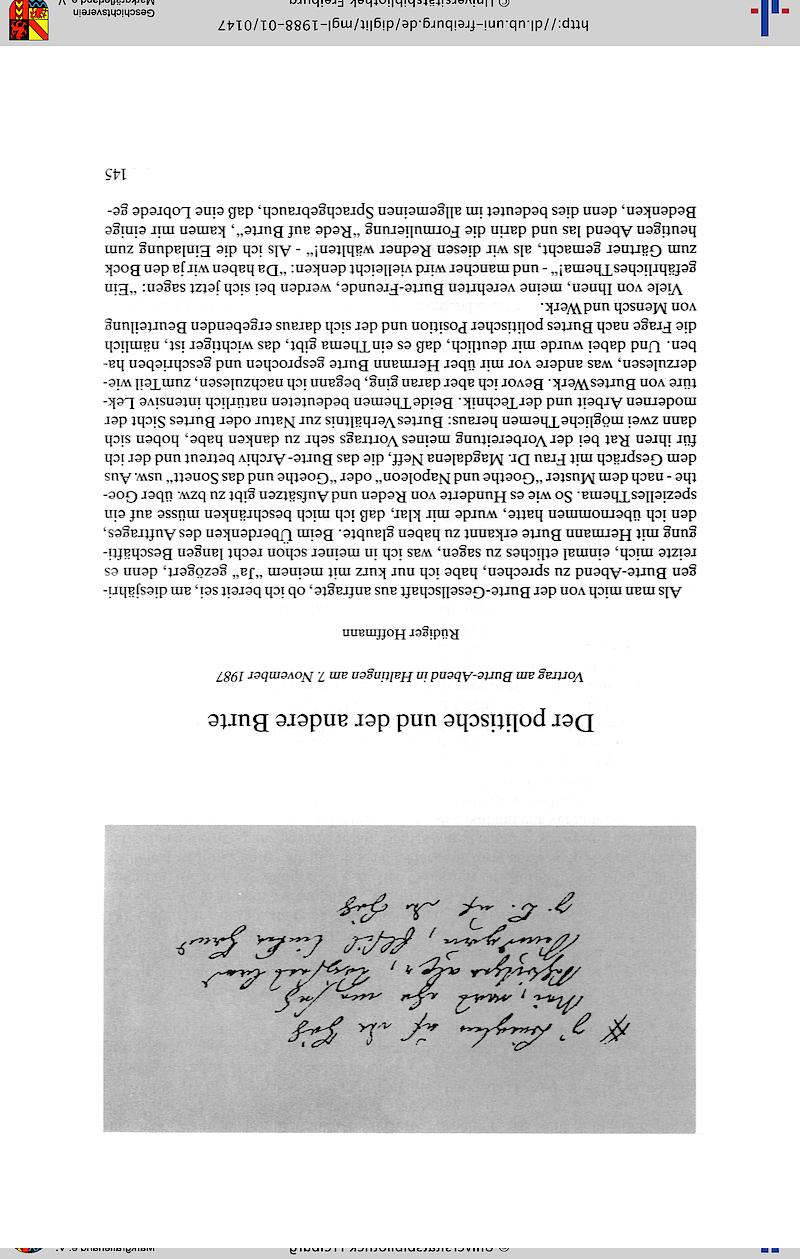 Der politische und der andere Burte
Vortrag am Burte-Abend in Haltingen am 7. November 1987
Rüdiger Hoffmann
Als man mich von der Burte-Gesellschaft aus anfragte, ob ich bereit sei, am diesjähri-
gen Burte-Abend zu sprechen, habe ich nur kurz mit meinem "Ja" gezögert, denn es
reizte mich, einmal etliches zu sagen, was ich in meiner schon recht langen Beschäfti-
gung mit Hermann Burte erkannt zu haben glaubte. Beim Überdenken des Auftrages,
den ich übernommen hatte, wurde mir klar, daß ich mich beschränken müsse auf ein
spezielles Thema. So wie es Hunderte von Reden und Aufsätzen gibt zu bzw. über Goe-
the - nach dem Muster "Goethe und Napoleon" oder "Goethe und das Sonett" usw. Aus
dem Gespräch mit Frau Dr. Magdalena Neff, die das Burte-Archiv betreut und der ich
für ihren Rat bei der Vorbereitung meines Vortrags sehr zu danken habe, hoben sich
dann zwei mögliche Themen heraus: Burtes Verhältnis zur Natur oder Burtes Sicht der
modernen Arbeit und der Technik. Beide Themen bedeuteten natürlich intensive Lek-
türe von Burtes Werk. Bevor ich aber daran ging, begann ich nachzulesen, zum Teil wie-
derzulesen, was andere vor mir über Hermann Burte gesprochen und geschrieben ha-
ben. Und dabei wurde mir deutlich, daß es ein Thema gibt, das wichtiger ist, nämlich
die Frage nach Burtes politischer Position und der sich daraus ergebenden Beurteilung
von Mensch und Werk.
Viele von Ihnen, meine verehrten Burte-Freunde, werden bei sich jetzt sagen: "Ein
gefährliches Thema!" - und mancher wird vielleicht denken: "Da haben wir ja den Bock
zum Gärtner gemacht, als wir diesen Redner wählten!" - Als ich die Einladung zum
heutigen Abend las und darin die Formulierung "Rede auf Burte", kamen mir einige
Bedenken, denn dies bedeutet im allgemeinen Sprachgebrauch, daß eine Lobrede ge-
145
http://dl.ub.uni-freiburg.de/diglit/mgl-1988-01/0147
Geschichtsverein
Markgräflerland e. V.
© Universitätsbibliothek Freiburg